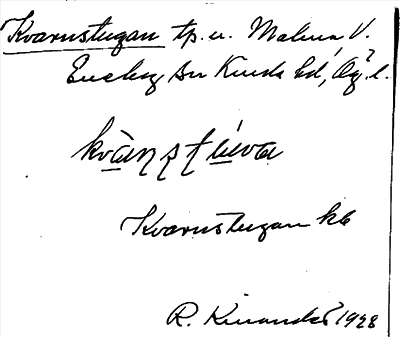 Kvarnstugan tp. u. Malma V.
Eneby sn Kinda hd, Ög. l.
Kvarnstugan kb
R. Kinander 1928